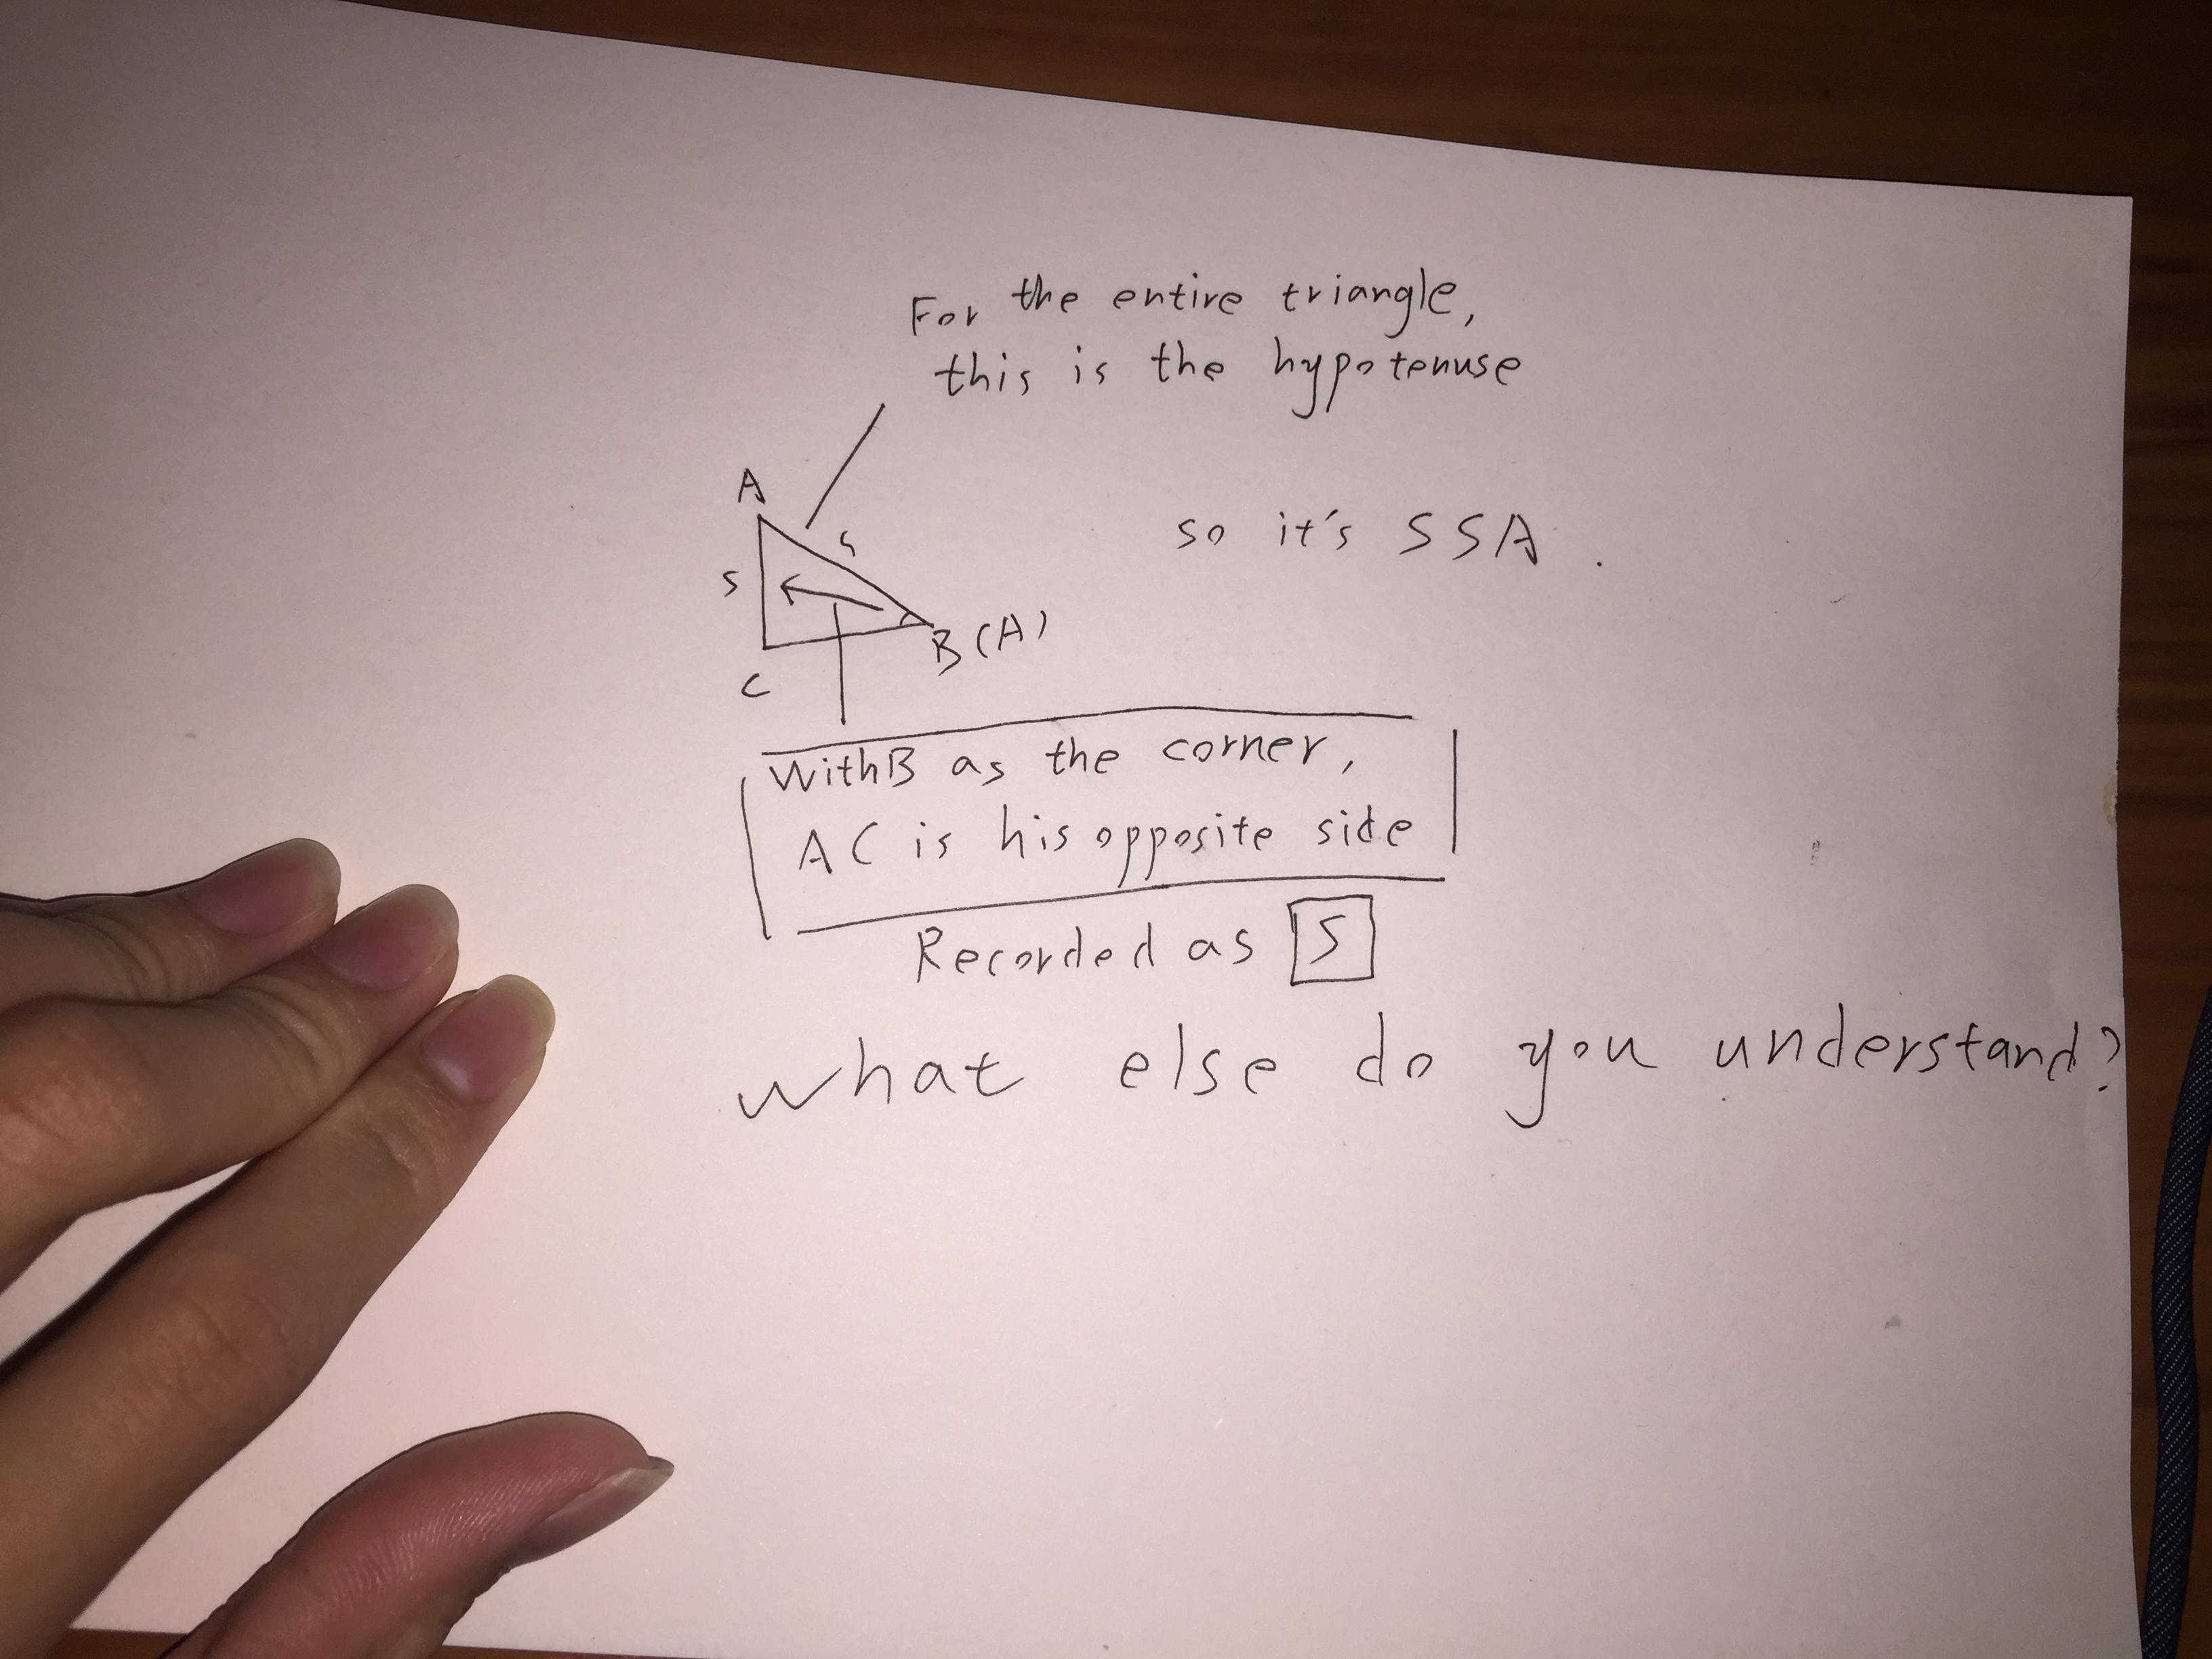 For the entire triangle,
this is the hypotenuse
A
S
S
so it's SSA.
B (A)
C
With B as the corner,
AC is his opposite side
Recorded as S
what else do you understand?